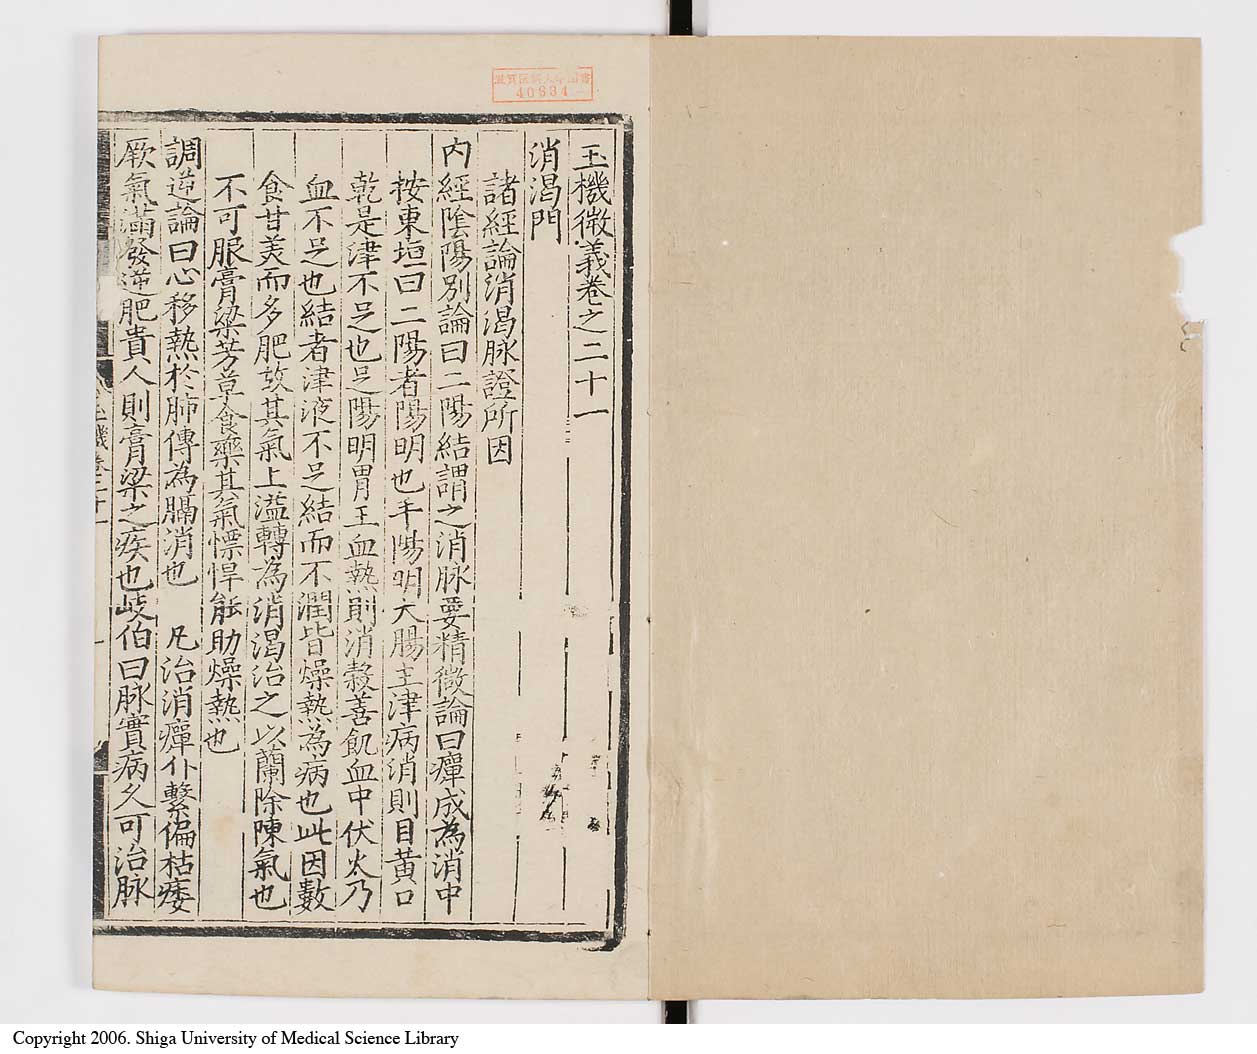 玉機微義卷之二十一
消渴門
諸經論消渴脉證所因
內經陰陽別論曰二陽結謂之消脉要精微論曰癉成為消中
按東垣曰二陽者陽明也手陽明大腸主津病消則目黃口
乾是津不足也足陽明胃主血熱則消穀善飢血中伏火乃
血不足也結者津液不足結而不潤皆燥熱為病也此因數
食甘美而多肥故其氣上溢轉為消渴治之以蘭除陳氣也
不可服膏粱芳草食藥其氣慓悍能助燥熱也
調逆論曰心移熱於肺傳為膈消也 凡治消癉仆擊偏枯痿
厥氣滿發逆肥貴人則膏粱之疾也歧伯曰脉實病久可治脉
40634
Copyright 2006. Shiga University of Medical Science Library